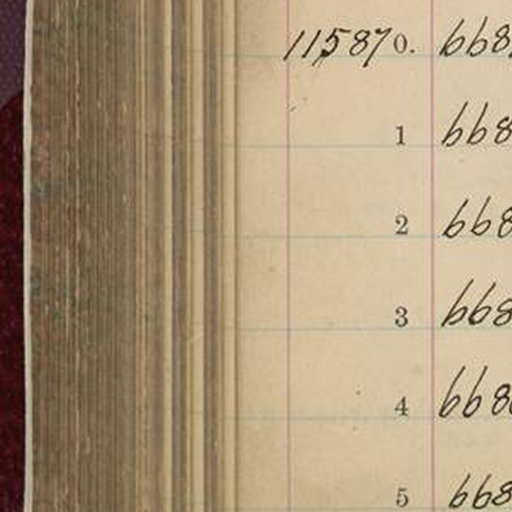 115870. 668
1 668
2 668
3 668
4 668
5 668